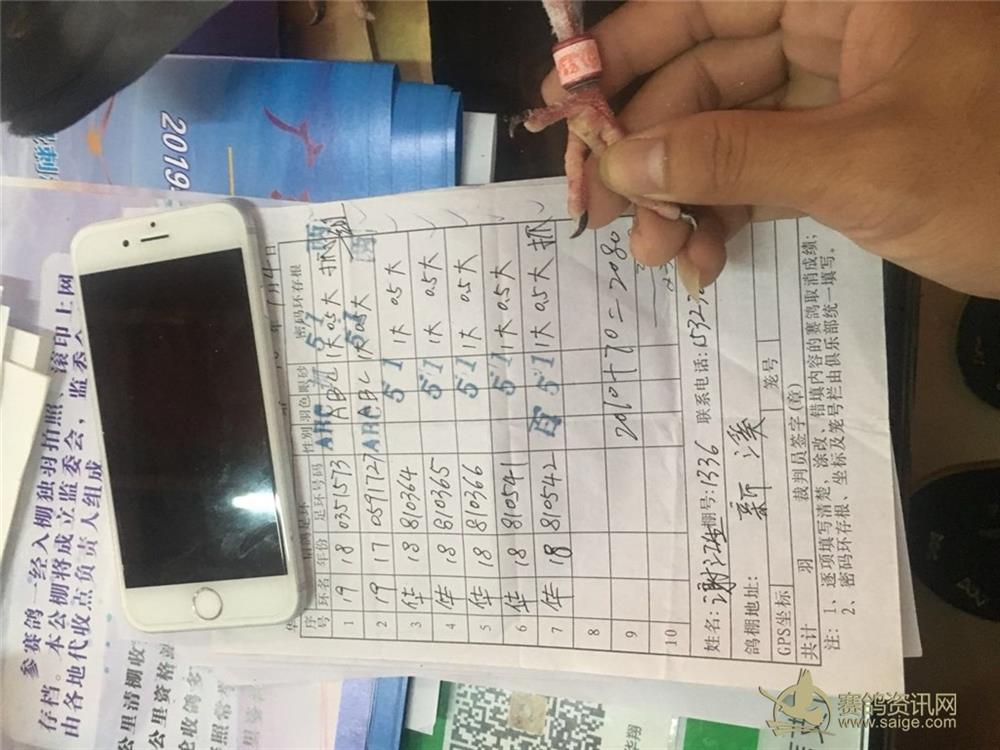 2019
参赛鸽一经入棚独羽拍照、滚印上网
存档。本公棚将成立监委会，监委人
由各地代收点负责人组成
序号 环名 年份 足环号码 性别 羽色 眼砂 密码环存根
1 19 18 0351573 ABC 1大 0.5大 抓
2 19 17 0591727 ABC 51 1大 0.5大
3 华 18 810364 51 1大 0.5大
4 华 18 810365 51 1大 0.5大
5 华 18 810366 51 1大 0.5大
6 华 18 810541 51 1大 0.5大
7 华 18 810542 51 1大 0.5大 抓
8
9 2010+70=2080
10
姓名: 棚号:1336 联系电话:
鸽棚地址: 新溪
GPS坐标
共计 羽 裁判员签字(章) 笼号
注: 1、逐项填写清楚、涂改、错填内容的赛鸽取消成绩;
2、密码环存根、坐标及笼号栏由俱乐部统一填写。
公里清棚收
公里资格
仑收鸽多
照常
华翔
赛鸽资讯网
www.saige.com